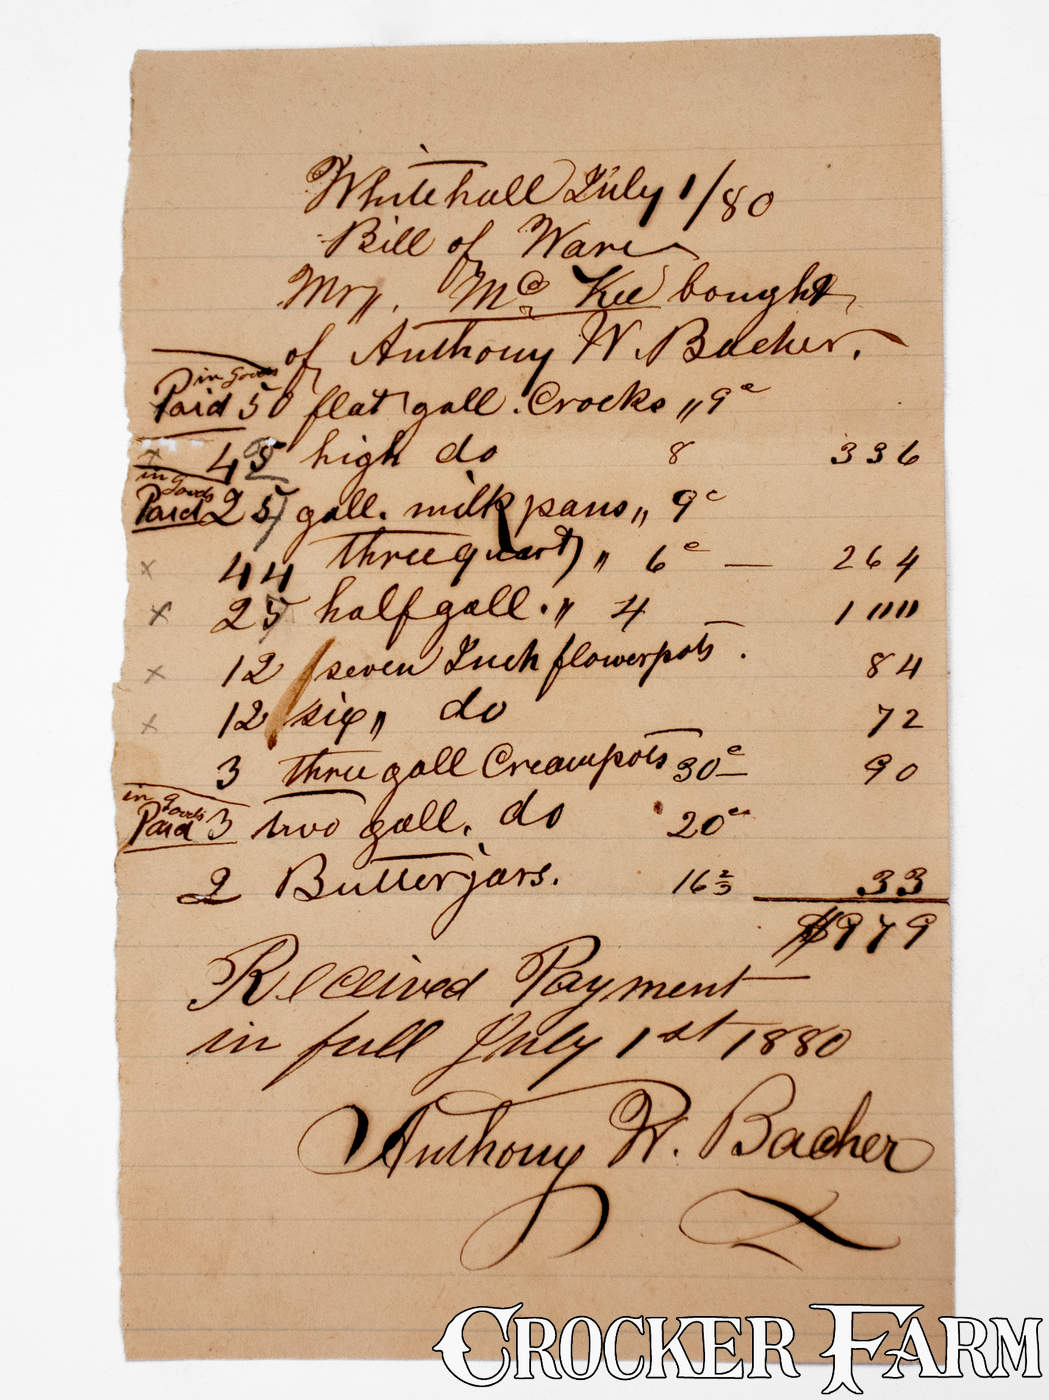 Whitehall July 1/80
Bill of Ware
Mrs. McKee bought
of Anthony W. Bacher.
in goods
Paid 50 flat gall. Crocks " 9c
x 45 high do 8 336
in goods
Paid 25 gall. milk pans " 9c
x 44 three quart " 6c — 264
x 25 half gall. " 4 1 """
x 12 seven Inch flowerpots . 84
x 12 six " do 72
3 three gall Creampots 30c — 90
in goods
Paid 3 two gall. do 20c
2 Butterjars. 16 2/3 33
$979
Received Payment
in full July 1st 1880
Anthony W. Bacher
CROCKER FARM